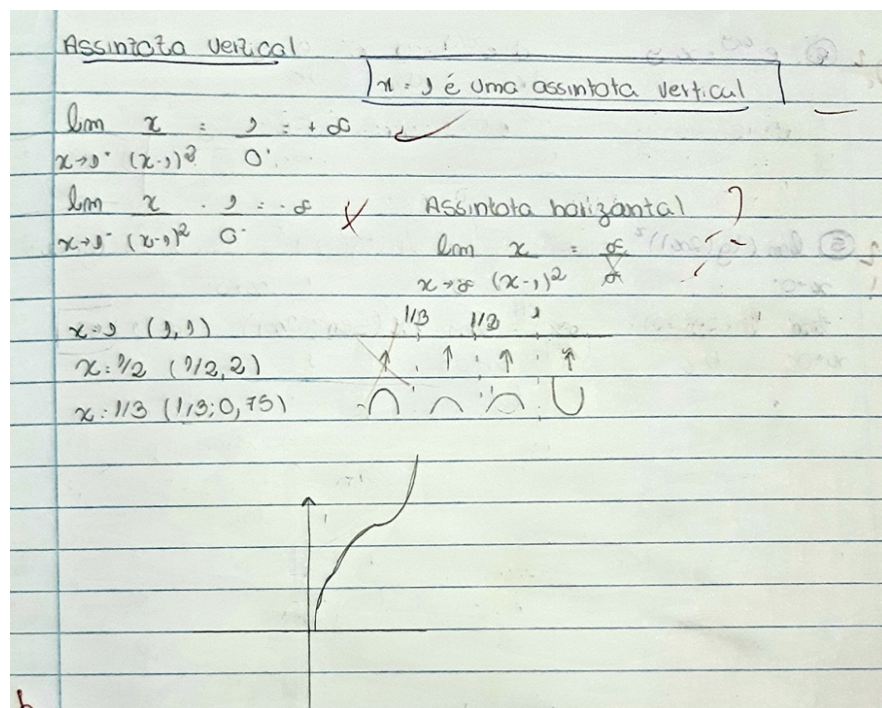 Assintota vertical
x = 1 é uma assintota vertical
lim x = 1 = +∞
x→1⁺ (x-1)² 0⁺
lim x = 1 = -∞
x→1⁻ (x-1)² 0⁻
Assintota horizontal ?
lim x = ∞
x→∞ (x-1)² ∞
1/3 1/2 1
x=1 (1,1)
x=1/2 (1/2,2)
x=1/3 (1/3;0,75)